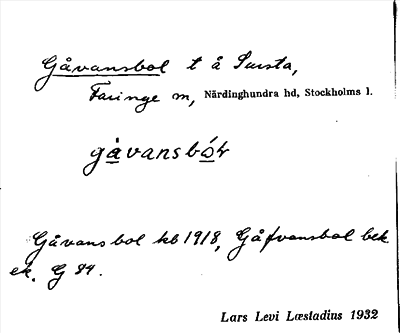 Gåvansbol t å Sursta,
Faringe sn, Närdinghundra hd, Stockholms l.
gåvansbó
Gåvansbol kb 1918, Gåfvansbol bek
ek. G 84.
Lars Levi Læstadius 1932